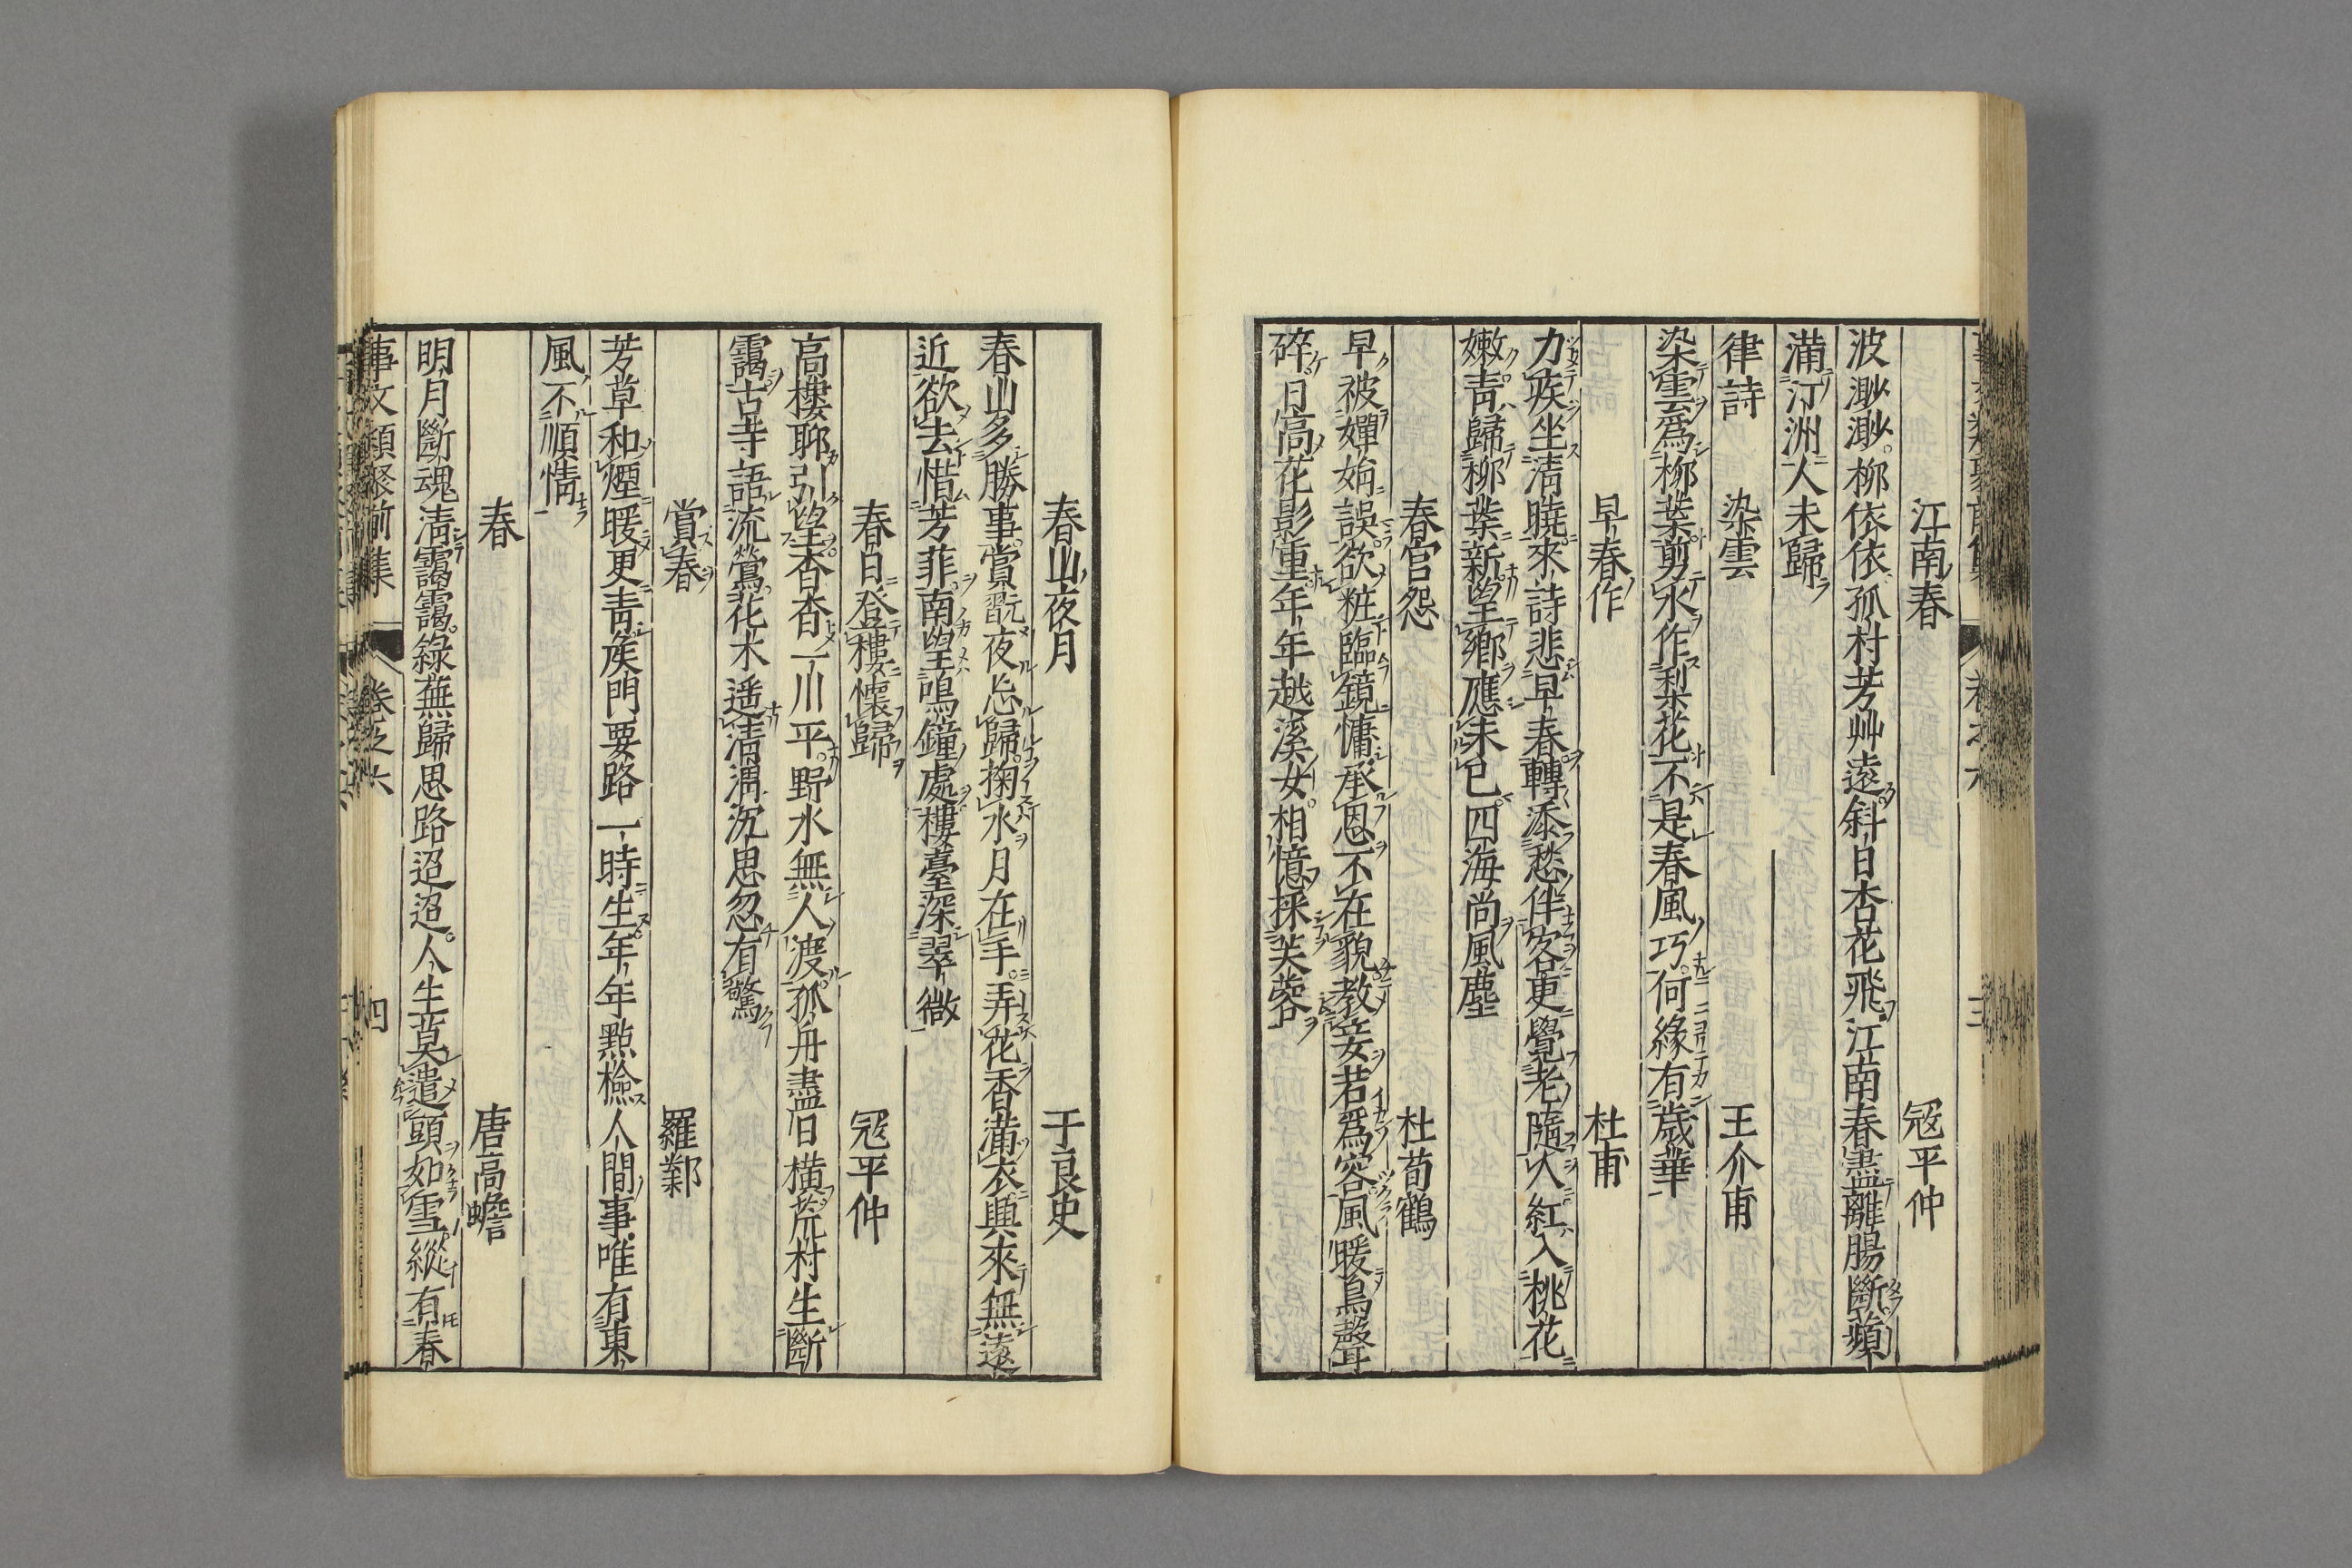 江南春　冦平仲
波渺渺柳依依孤村芳艸遠斜日杏花飛江南春盡離腸斷蘋
滿汀洲人未歸
律詩　染雲　王介甫
染雲爲柳葉剪水作梨花不是春風巧何緣有歲華
早春作　杜甫
力疾坐清曉來詩悲早春轉添愁伴客更覺老隨人紅入桃花
嫩青歸柳葉新望鄉應未已四海尚風塵
春宮怨　杜荀鶴
早被嬋娟誤欲粧臨鏡慵承恩不在貌教妾若爲容風暖鳥聲
碎日高花影重年年越溪女相憶採芙蓉
春山夜月　于良史
春山多勝事賞翫夜忘歸掬水月在手弄花香滿衣興來無遠
近欲去惜芳菲南望鳴鐘處樓臺深翠微
春日登樓懷歸　冦平仲
高樓聊引望杳杳一川平野水無人渡孤舟盡日橫荒村生斷
靄古寺語流鶯花木遥清渭沉思忽有驚
賞春　羅鄴
芳草和煙暖更青矦門要路一時生年年點檢人間事唯有東
風不順情
春　唐高蟾
明月斷魂清靄靄綠蕪歸思路迢迢人生莫遣頭如雪縱有春
事文類聚前集　卷之六　四